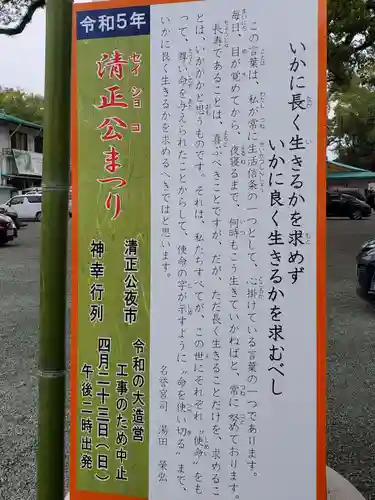 いかに長く生きるかを求めず
いかに良く生きるかを求むべし
この言葉は、私が常に生活信条の一つとして、心掛けている言葉の一つであります。
毎日、目が覚めてから、夜寝るまで、何時もこう生きていかねばと、常に努めております。
長寿であることは、喜ぶべきことですが、だが、ただ長く生きることだけを、求めるこ
とは、いかがかと思うものです。それは、私たちすべてが、この世にそれぞれ“使命”をも
って、尊い命を与えられたことからして、使命の字が示すように“命を使い切る”まで、
いかに良く生きるかを求めるべきではと思います。
名誉宮司 湯田 榮弘
令和5年
清正公まつり
セイショコ
清正公夜市
神幸行列
令和の大造営
工事のため中止
四月二十三日(日)
午後二時出発